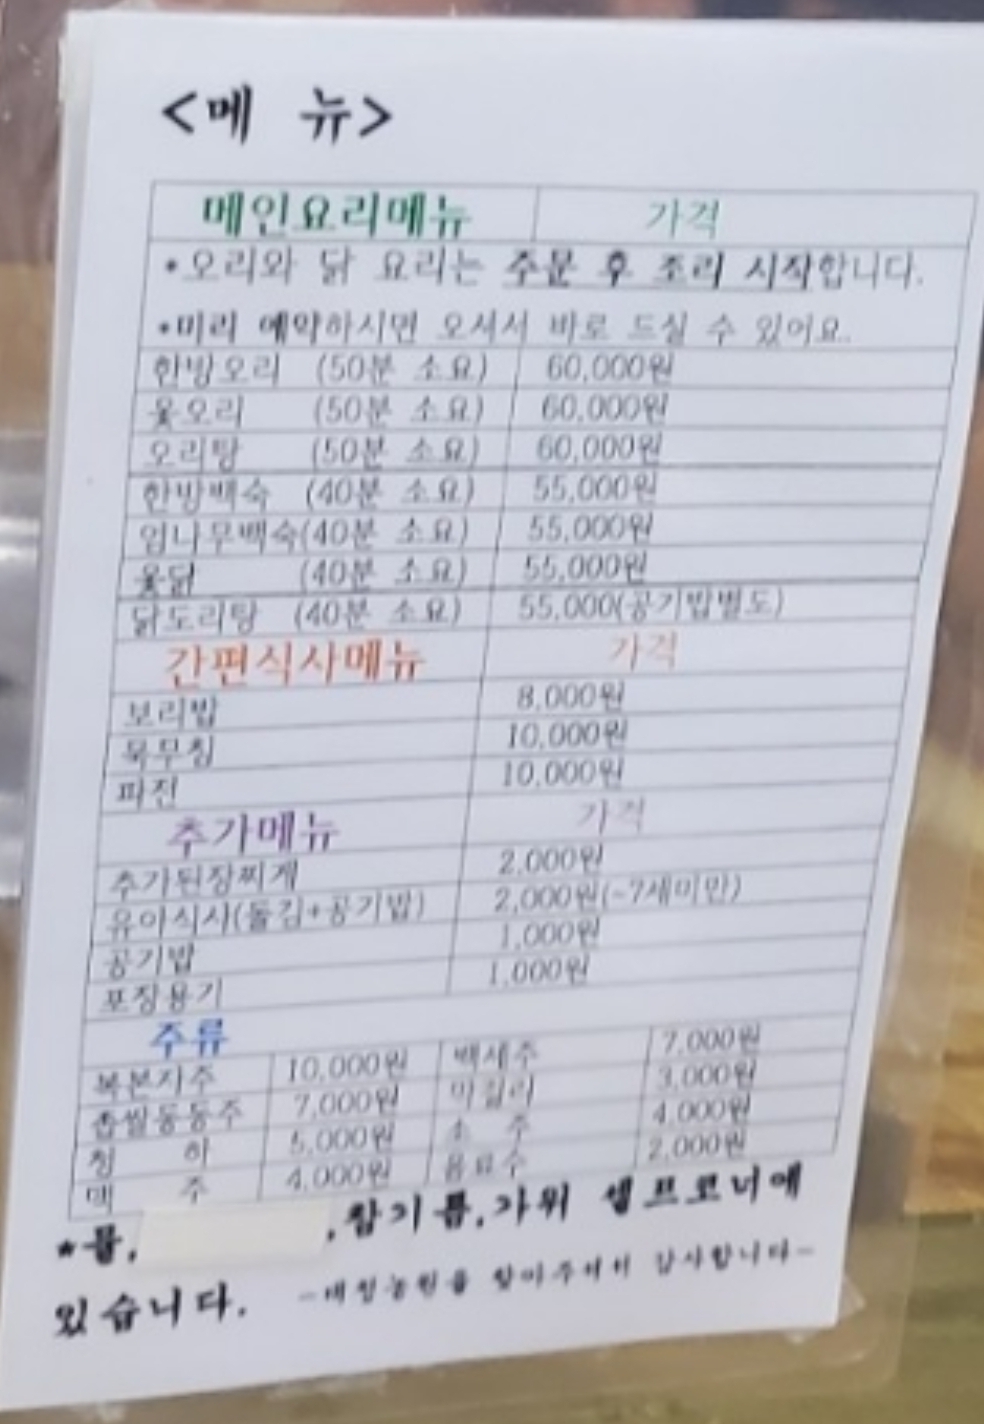 <메 뉴>
메인요리메뉴 가격
•오리와 닭 요리는 주문 후 조리 시작합니다.
•미리 예약하시면 오셔서 바로 드실 수 있어요.
한방오리 (50분 소요) 60,000원
옻오리 (50분 소요) 60,000원
오리탕 (50분 소요) 60,000원
한방백숙 (40분 소요) 55,000원
엄나무백숙(40분 소요) 55,000원
옻닭 (40분 소요) 55,000원
닭도리탕 (40분 소요) 55,000(공기밥별도)
간편식사메뉴 가격
보리밥 8,000원
묵무침 10,000원
파전 10,000원
추가메뉴 가격
추가된장찌개 2,000원
유아식사(돌김+공기밥) 2,000원(~7세미만)
공기밥 1,000원
포장용기 1,000원
주류
복분자주 10,000원 백세주 7,000원
찹쌀동동주 7,000원 막걸리 3,000원
청 하 5,000원 소 주 4,000원
맥 주 4,000원 음료수 2,000원
*물, ,참기름,가위 셀프코너에
있습니다. 찾아주셔서 감사합니다-